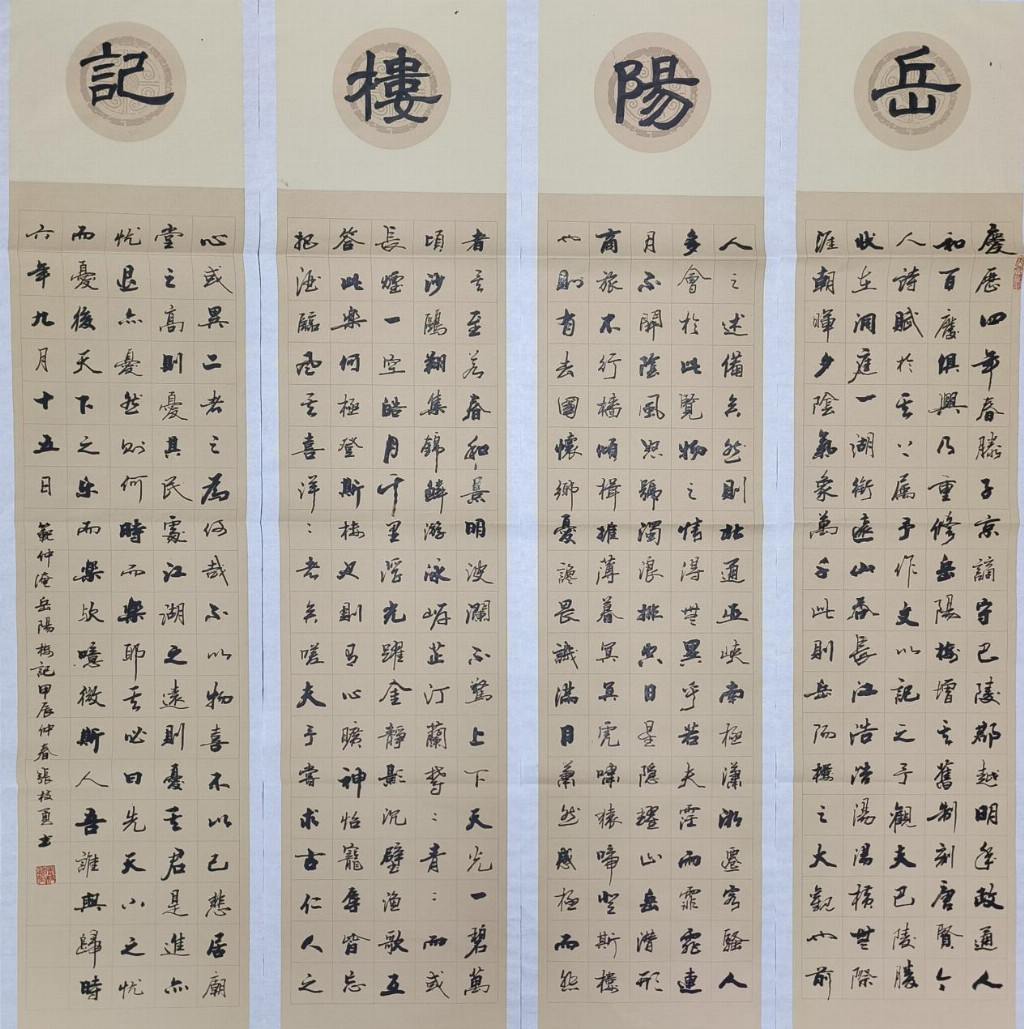 岳
陽
樓
記
慶歷四年春滕子京謫守巴陵郡越明年政通人
和百廢俱興乃重修岳陽樓增其舊制刻唐賢今
人詩賦於其上属予作文以記之予觀夫巴陵勝
狀在洞庭一湖銜遠山吞長江浩浩湯湯橫無際
涯朝暉夕陰氣象萬千此則岳陽樓之大觀也前
人之述備矣然則北通巫峽南極瀟湘遷客騷人
多會於此覽物之情得無異乎若夫淫雨霏霏連
月不開陰風怒號濁浪排空日星隱耀山岳潛形
商旅不行檣傾楫摧薄暮冥冥虎嘯猿啼登斯樓
也則有去國懷鄉憂讒畏譏滿目蕭然感極而悲
者矣至若春和景明波瀾不驚上下天光一碧萬
頃沙鷗翔集錦鱗游泳岸芷汀蘭鬱鬱青青而或
長煙一空皓月千里浮光躍金靜影沉璧漁歌互
答此樂何極登斯樓也則有心曠神怡寵辱皆忘
把酒臨風其喜洋洋者矣嗟夫予嘗求古仁人之
心或異二者之為何哉不以物喜不以己悲居廟
堂之高則憂其民處江湖之遠則憂其君是進亦
忧退亦憂然则何時而樂耶其必曰先天下之忧
而憂後天下之乐而樂欤噫微斯人吾誰與歸時
六年九月十五日
範仲淹岳陽樓記甲辰仲春張枝書